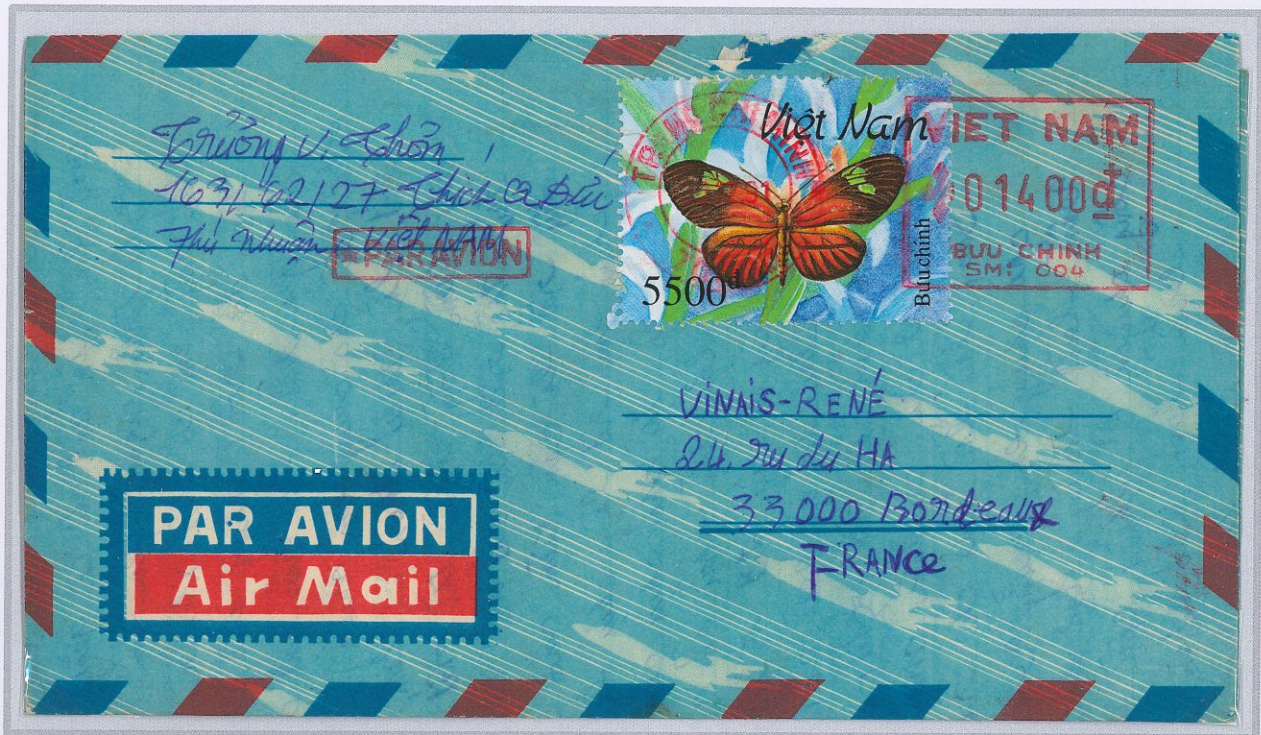 Trương V. Thôn
163/62/27 Thích Q Đức
Phú Nhuận - Việt NAM
PAR AVION
Việt Nam
5500đ
Bưu chính
VIET NAM
01400đ
BUU CHINH
SM: 004
VINAIS-RENÉ
24. ru du HA
33000 Bordeaux
FRANCe
PAR AVION
Air Mail